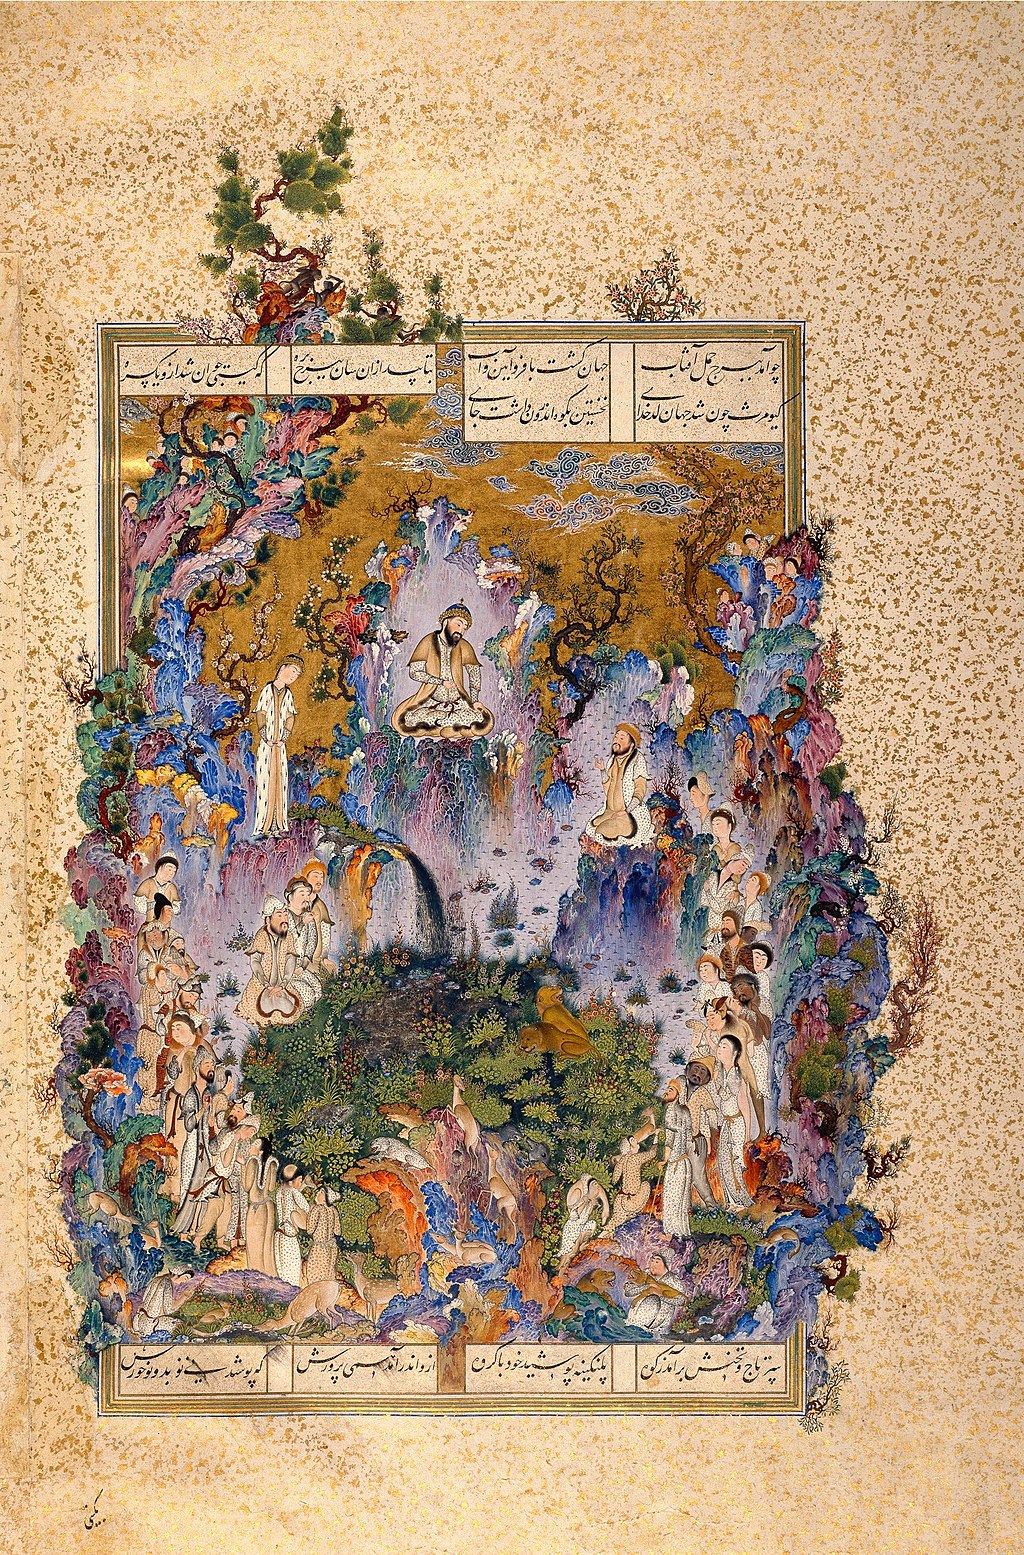 چو آمد ببرج حمل آفتاب جهان گشت با فر و آیین و آب بتابید ازان سان ببرج بره که گیتی جوان شد ازو یکسره
کیومرث چون شد جهان کدخدای نخستین بکوه اندرون داشت جای
سر تاج و تختش برآمد ز کوه پلنگینه پوشید خود با گروه ازو اندر آمد همی پرورش که پوشیدنی نو بد و نو خورش